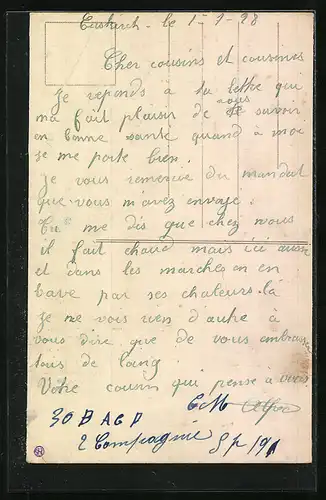 le 1-9-28
Cher cousins et cousines
Je reponds à ta lettre qui
ma fait plaisir de vous savoir
en bonne santé quand à moi
je me porte bien.
Je vous remercie du mandat
que vous m'avez envoyé.
Tu me dis que chez vous
il fait chaud mais ici aussi
et dans les marches on en
bave par ses chaleurs-là
Je ne vois rien d'autre à
vous dire que de vous embrasser
tous de loing.
Votre cousin qui pense à vous
30 B A C P
2 Compagnie S P 191